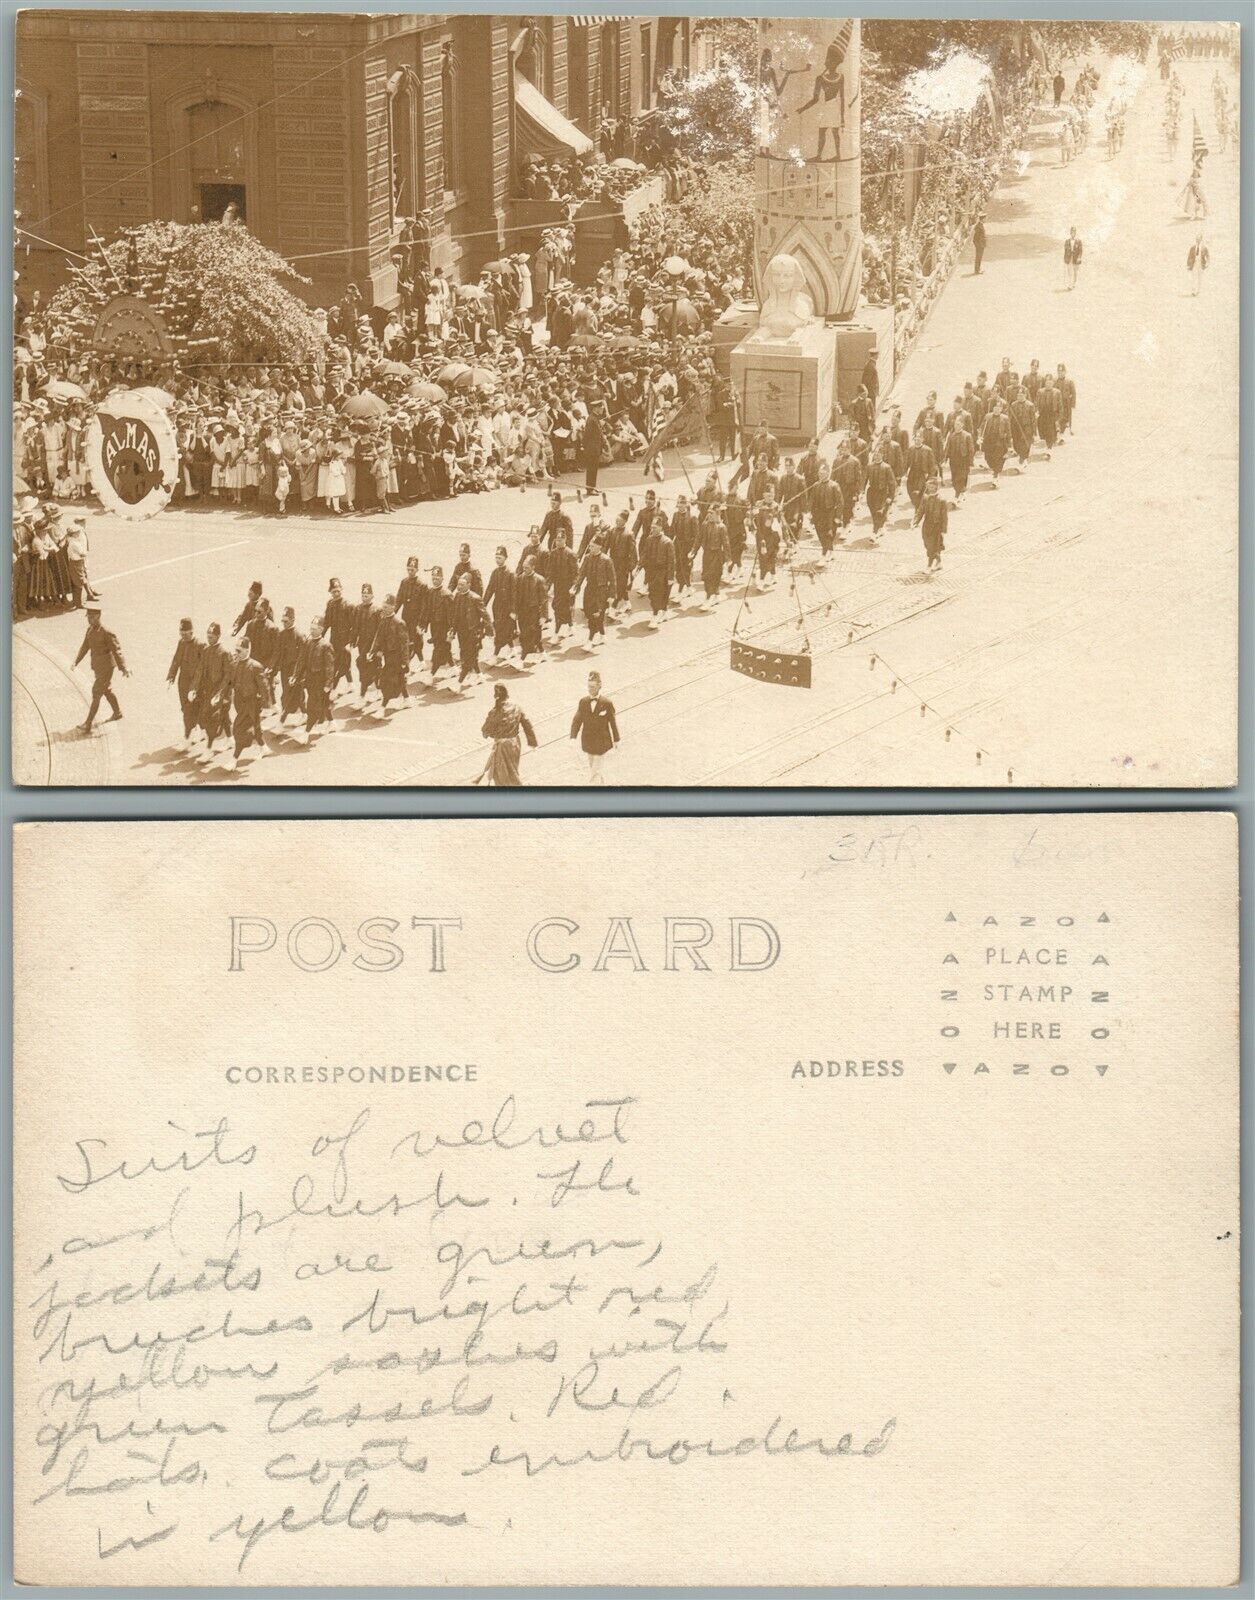 ALMAS
POST CARD
▲ AZO ▲
A PLACE A
Z STAMP Z
O HERE O
▼ AZO ▼
CORRESPONDENCE
ADDRESS
Suits of velvet
and plush. The
jackets are green,
bruches bright red,
yellow sashes with
green Tassels. Red
hats. coats embroidered
in yellow.